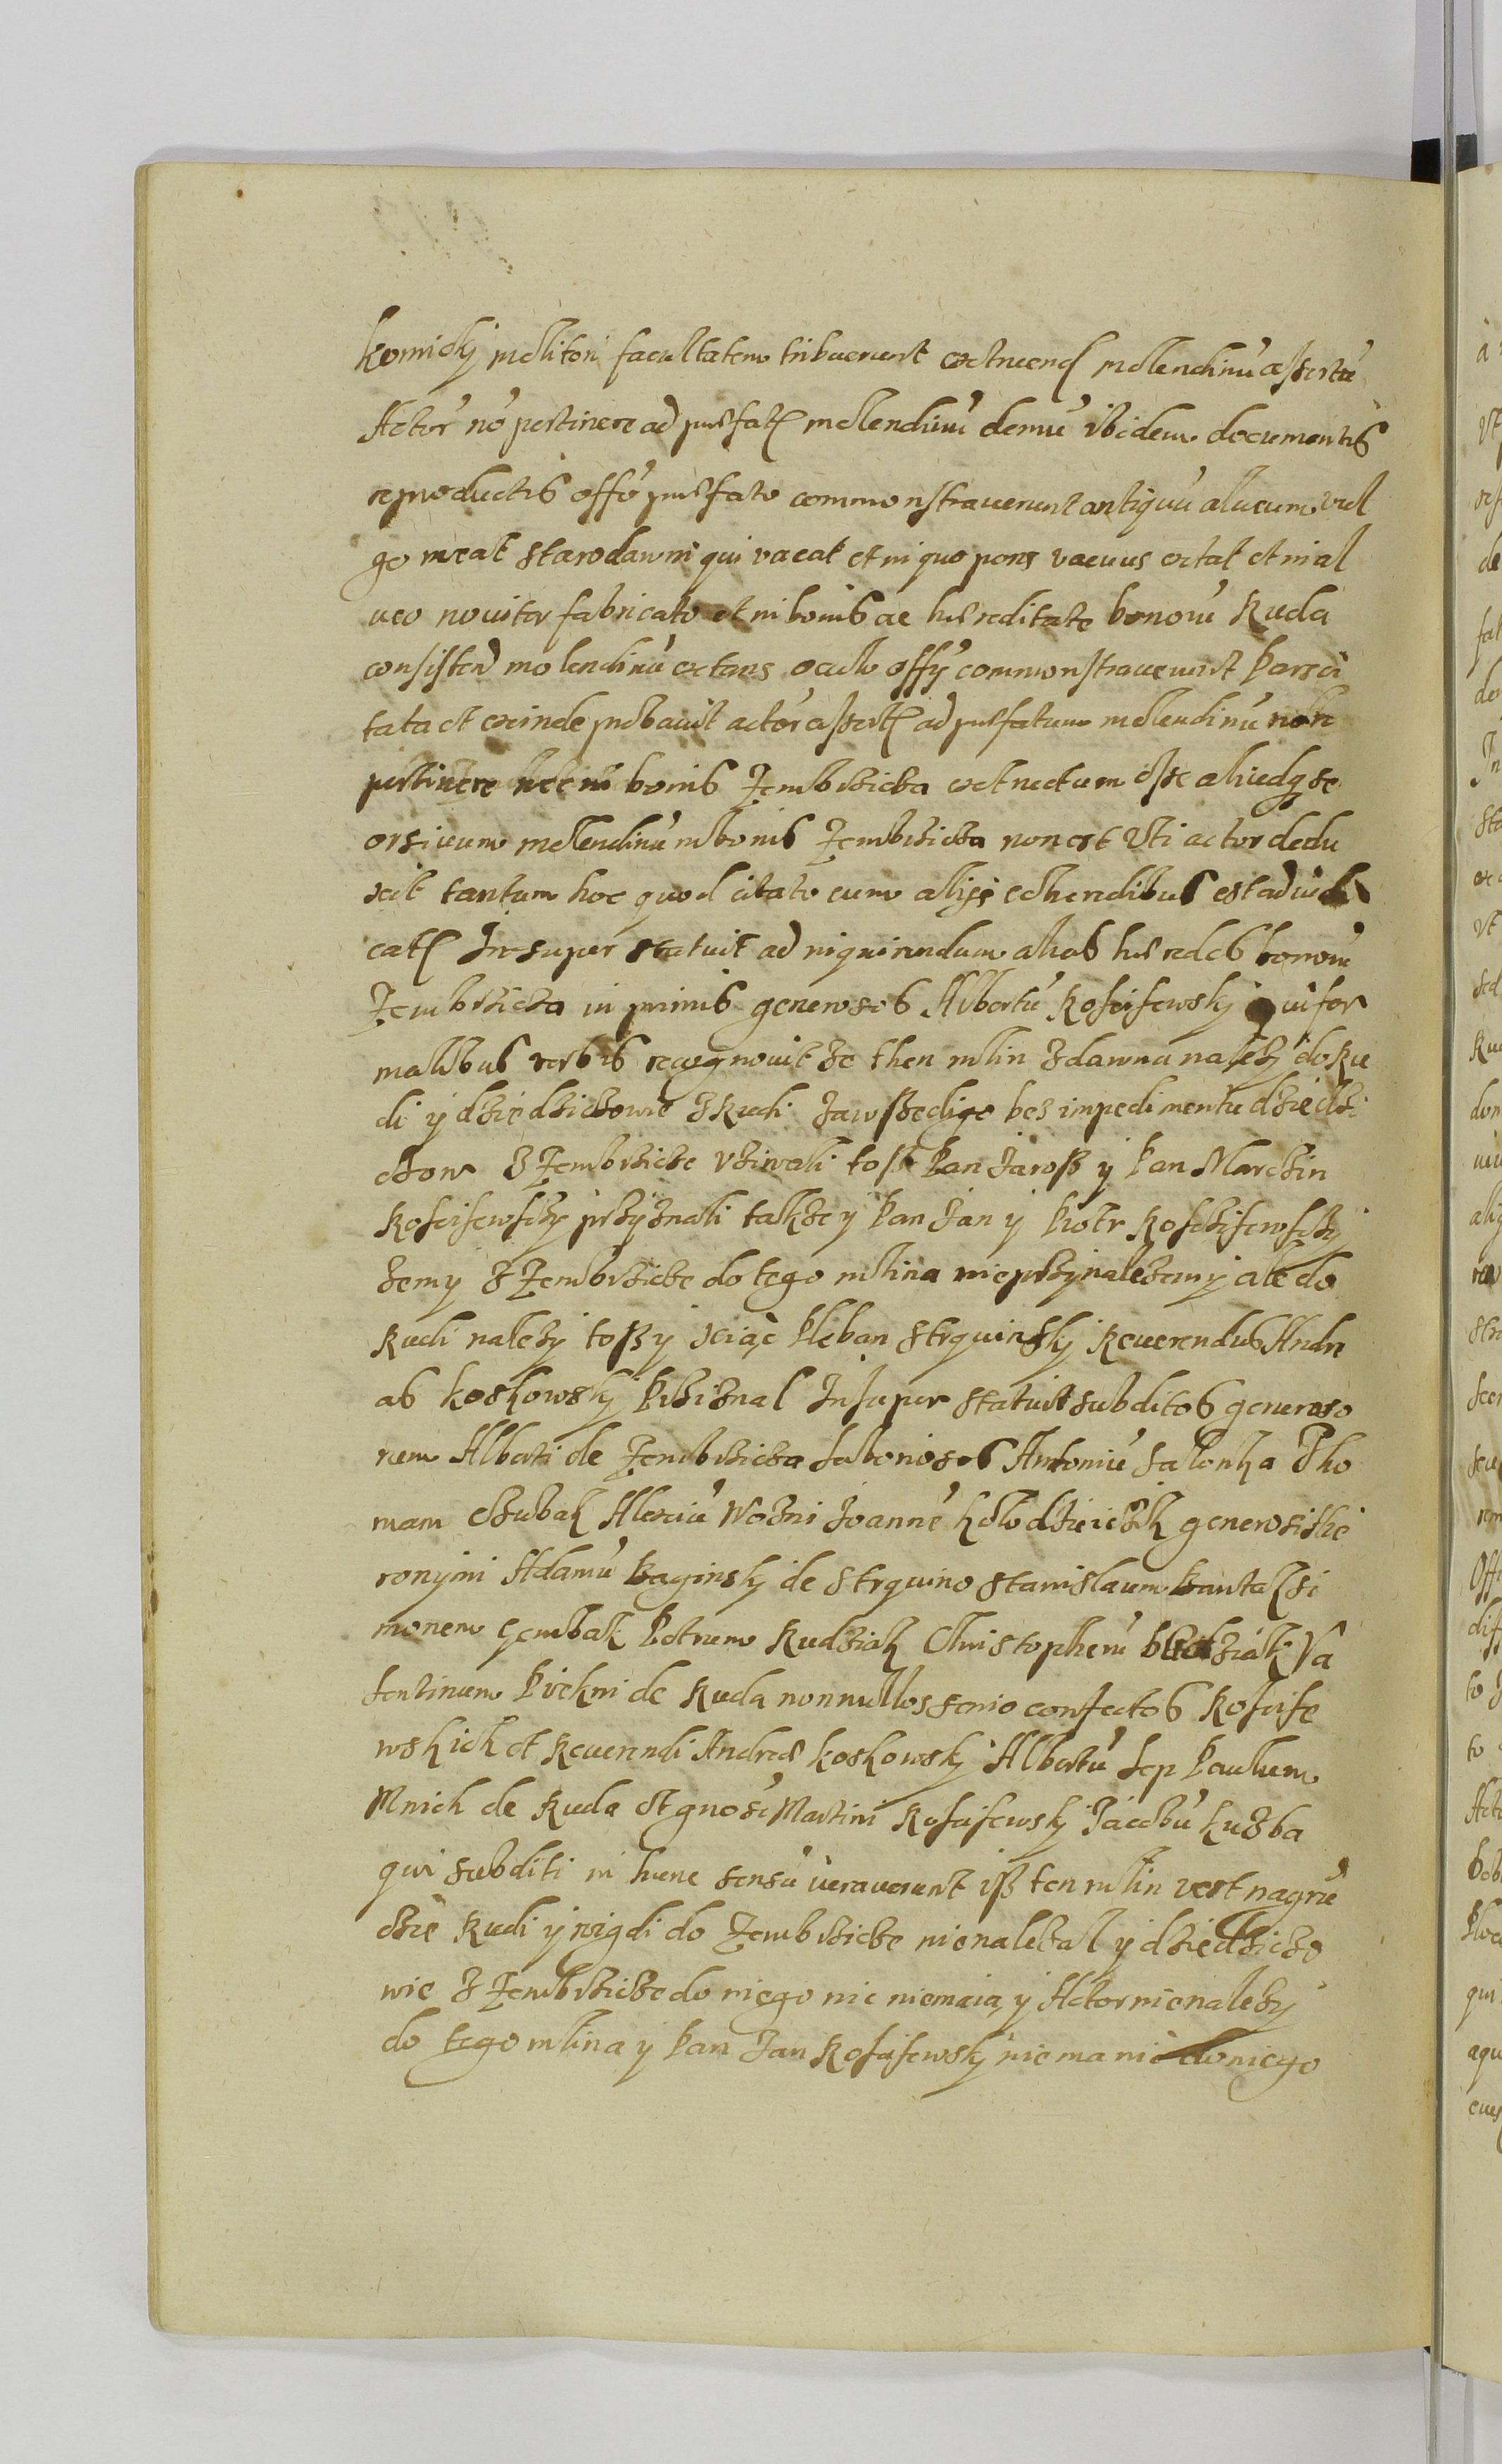 komicky molitori facultatem tribuerunt extruend molendinu assertu
Actor no pertinere ad praefat molendinu demu ibidem documentis
reproductis offo praefato commonstraverunt antiquu alueum vul
go meat starodawni qui vacat et in quo pons vacuus extat et in al
ueo noviter fabricato et in bonis ac haereditate bonoru Ruda
consisten molendinu extans oculo offy commonstraverunt Pars ci
tata et exinde probavit actor assert ad praefatum molendinu
pertinere nec in bonis Zembrzicza extructum esse aliudq se
orsivum molendinu in bonis Zembrzicza non est Uti actor dedu
xit tantum hoc quod citato cum aliis coheredibus est adiudi
cat Insuper statuit ad inquirendum alios haeredes bonoru
Zembrzicza in primis generosos Albertu Kosseisewsky qui for
malibus verbis recognovit ze then mlin zdawna nalezy do Ru
di y dziedziczowie z Rudi zawszedigo bes impedimentu dziedzi
czow z Zembrzicze vziwali toss Pan Jaross y Pan Marczin
Kosseisewsczy przyznali takze y Pan Jan y Piotr Kossczisewsczy
zemy z Zembrzicze do tego mlina nieprzynalezemy ale do
Rudi nalezy toss y xiąc Pleban Strquinsky Reverendus Andre
as Koskowsky Prziznal Insuper statuit subditos generoso
rum Alberti de Zembrzicza laboriosos Antoniu Salonka Tho
mam Czubak Alexiu Wozni Joanne Kolodzieiczik generosi Hie
ronymi Adamu Baginsky de Strquino Stanislaum Bantak Si
monem Gembak Petrum Rudziak Christopheru Va
lentinum Piekni de Ruda nonnullos senio confectos Kosseise
wskich et Reverendi Andreae Koskowsky Albertu Lep Paulum
Mnich de Ruda et gnosi Martini Kosseisewsky Jacobu Kuzba
qui subditi in hunc sensu iuraverunt iss ten mlin iest na gru
czie Rudi y nigdi do Zembrzicze nienalezal y dziedziczo
wie z Zembrzicze do niego nic niemaia y Actor nienalezy
do tego mlina y Pan Jan Kosseisewsky niema nic do niego